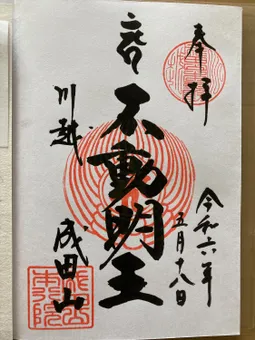 奉拝
令和六年
五月十八日
不動明王
川越
成田山